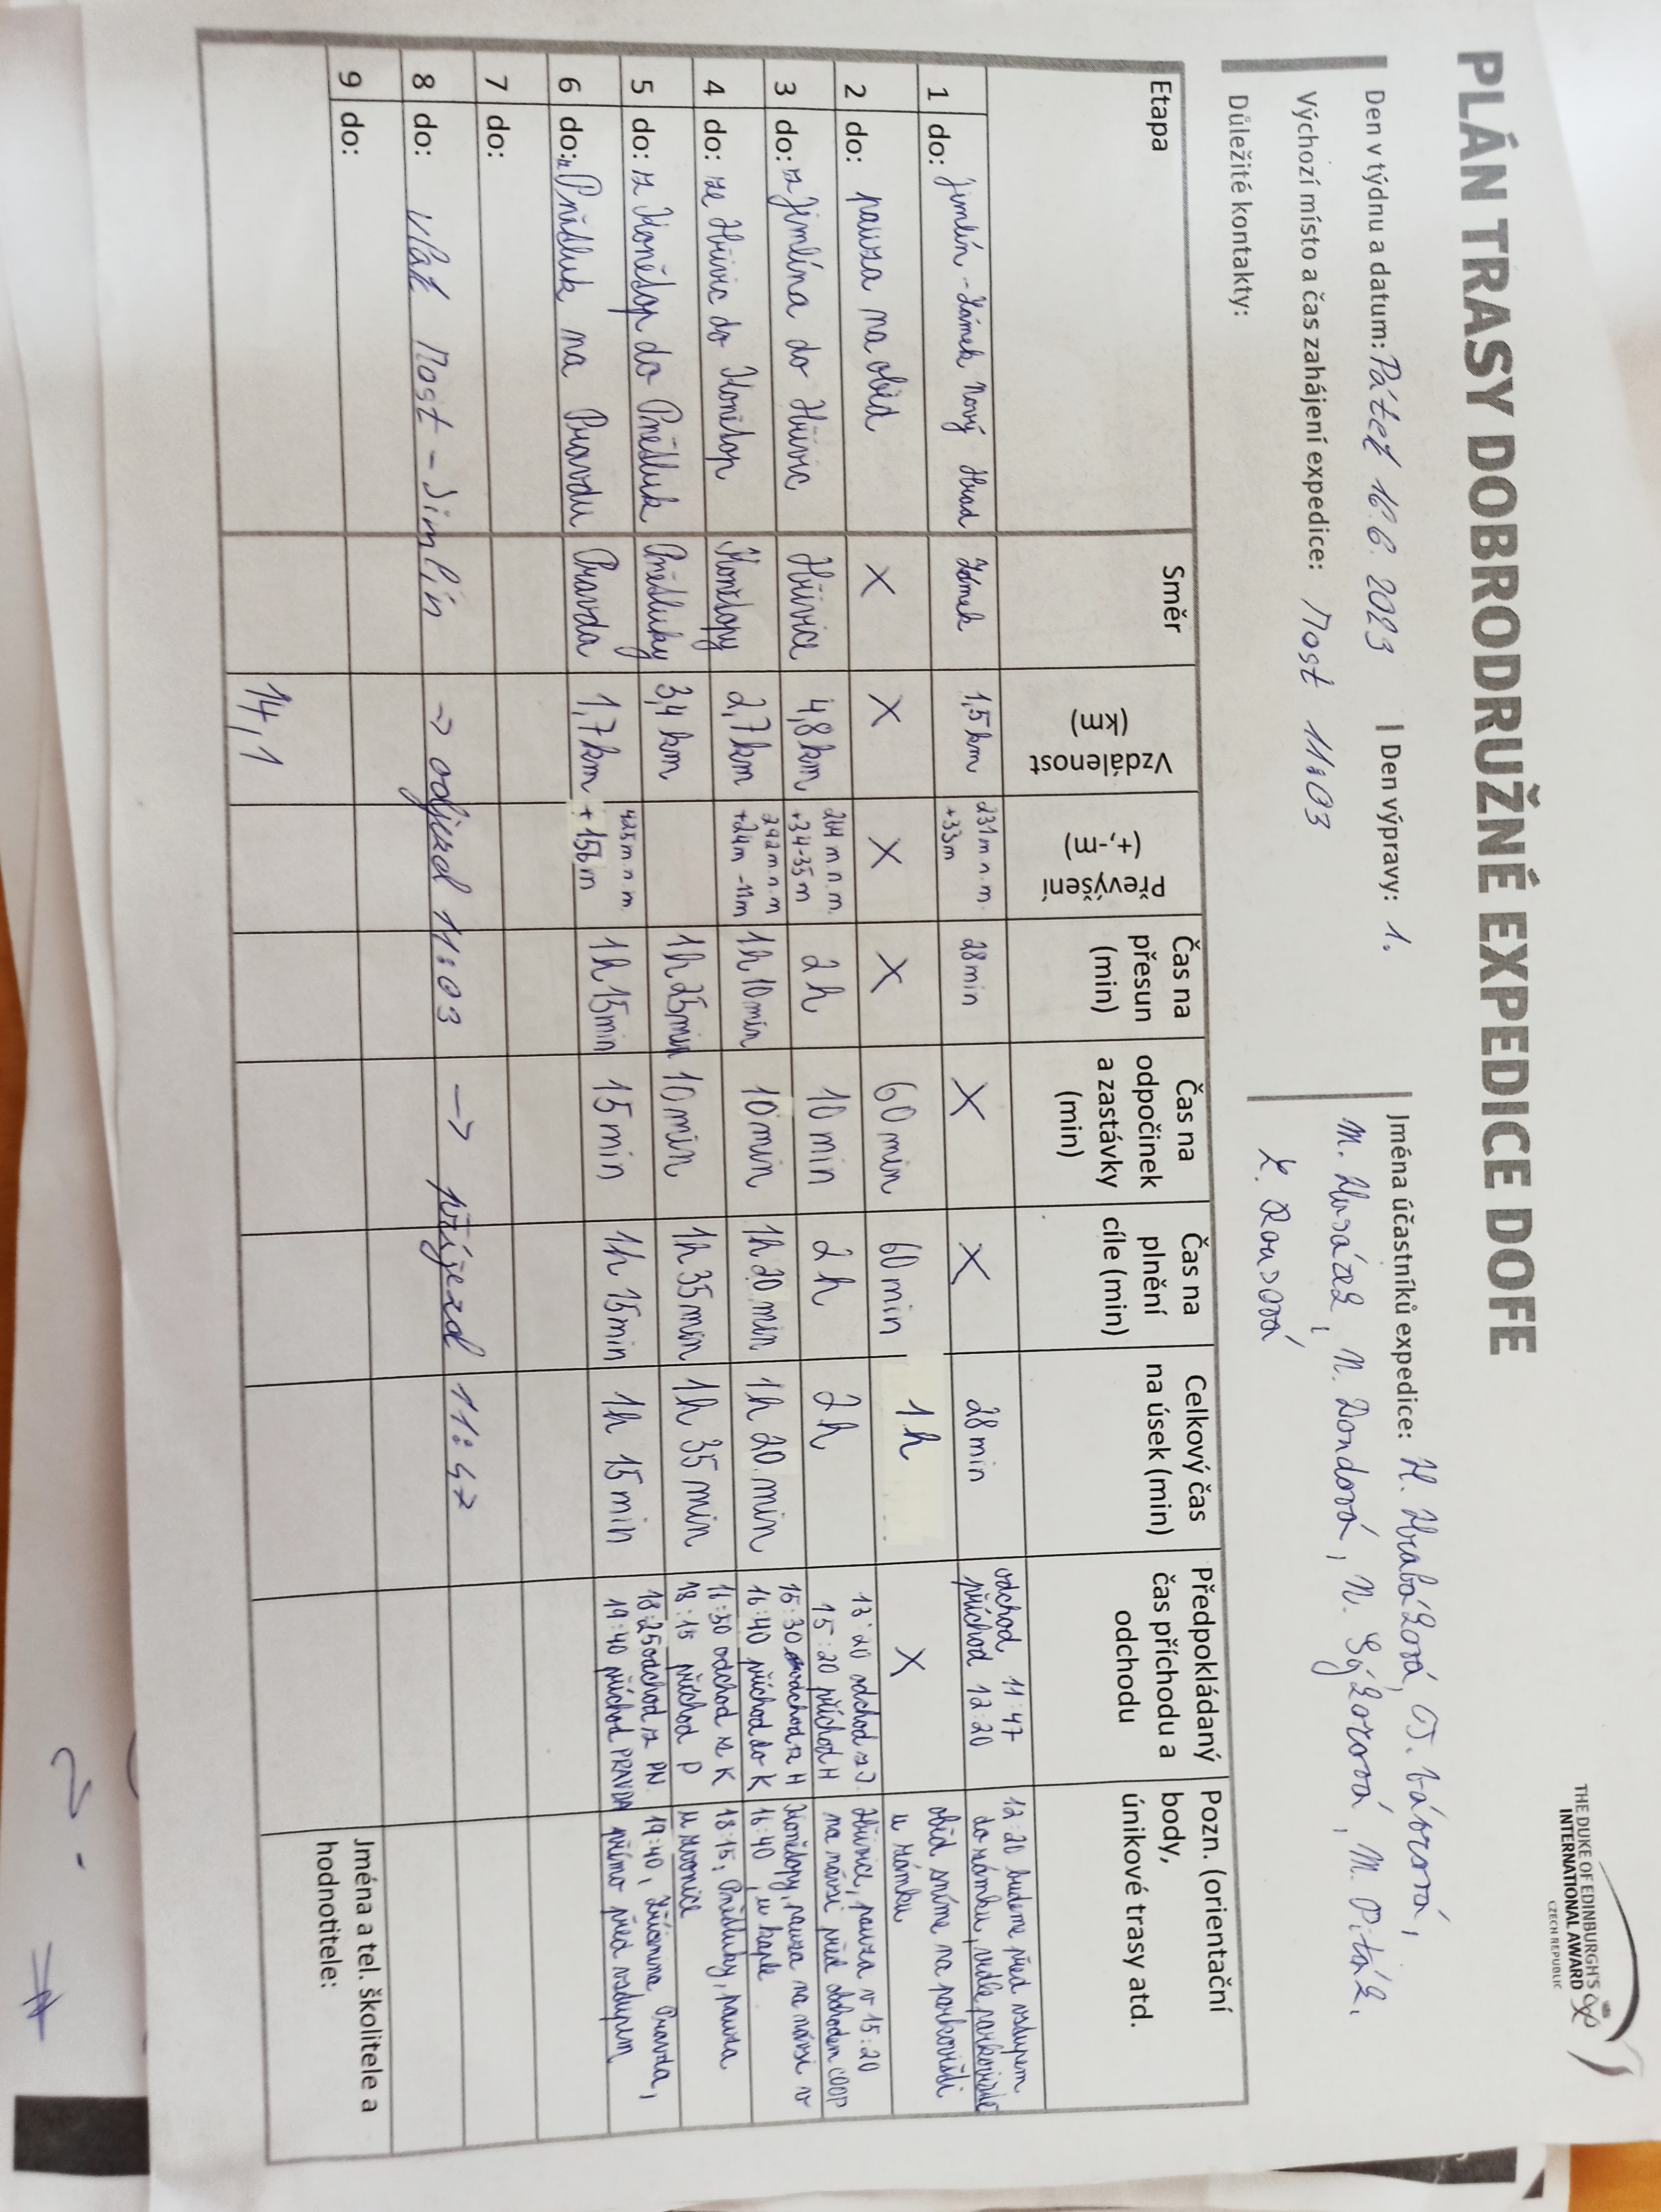 PLÁN TRASY DOBRODRUŽNÉ EXPEDICE DOFE
THE DUKE OF EDINBURGH'S
INTERNATIONAL AWARD
CZECH REPUBLIC
Den v týdnu a datum: Pátek 16.6. 2023 | Den výpravy: 1.
Výchozí místo a čas zahájení expedice: Most 11:03
Důležité kontakty:
Jména účastníků expedice: H. Hrabáková,
M. Husák, N. Dondová, N. Sýkorová, M. Piták,
Etapa
Směr
Vzdálenost
(km)
převýšení
(+,-m)
Čas na
přesun
(min)
Čas na
odpočinek
a zastávky
(min)
Čas na
plnění
cíle (min)
Celkový čas
na úsek (min)
Předpokládaný
čas příchodu a
odchodu
Pozn. (orientační
body,
únikové trasy atd.
1 do: Jimlín - Zámek Nový Hrad
Zámek
1,5 km
231 m n. m.
+33m
28 min
X
X
28 min
odchod 11:47
příchod 12:20
12:20 budeme před vstupem
do zámku, vedle parkoviště
2 do: pauza na oběd
X
X
X
X
60 min
60 min
1h
X
oběd sníme na parkovišti
u zámku
3 do: z Jimlína do Hřivic
Hřivice
4,8 km
264 m n. m.
+34-35m
2 h
10 min
2 h
2h
13:20 odchod z J.
15:20 příchod H
Hřivice, pauza v 15:20
na návsi před obchodem COOP
4 do: ze Hřivic do Konětop
Konětopy
2,7 km
292 m. n. m
+24m -11m
1h 10 min
10 min
1h 20 min
1h 20. min
15:30 odchod z H
16:40 příchod do K
Konětopy, pauza na návsi v
16:40, u kaple
5 do: z Konětop do Pnětluk
Pnětluky
3,4 km
1h 25min
10 min
1h 35min
1h 35 min
16:50 odchod z K
18:15 příchod P
18:15, Pnětluky, pauza
u zvonice
6 do: z Pnětluk na Pravdu
Pravda
1,7 km
425 m. n. m.
+156 m
1h 15min
15 min
1h 15min
1h 15 min
18:25 odchod z PN
19:40 příchod PRAVDA
19:40, zřícenina Pravda,
přímo před vstupem
7 do:
8 do: vlak Most - Jimlín → odjezd 11:03 → příjezd 11:47
9 do:
14,1
Jména a tel. školitele a
hodnotitele: